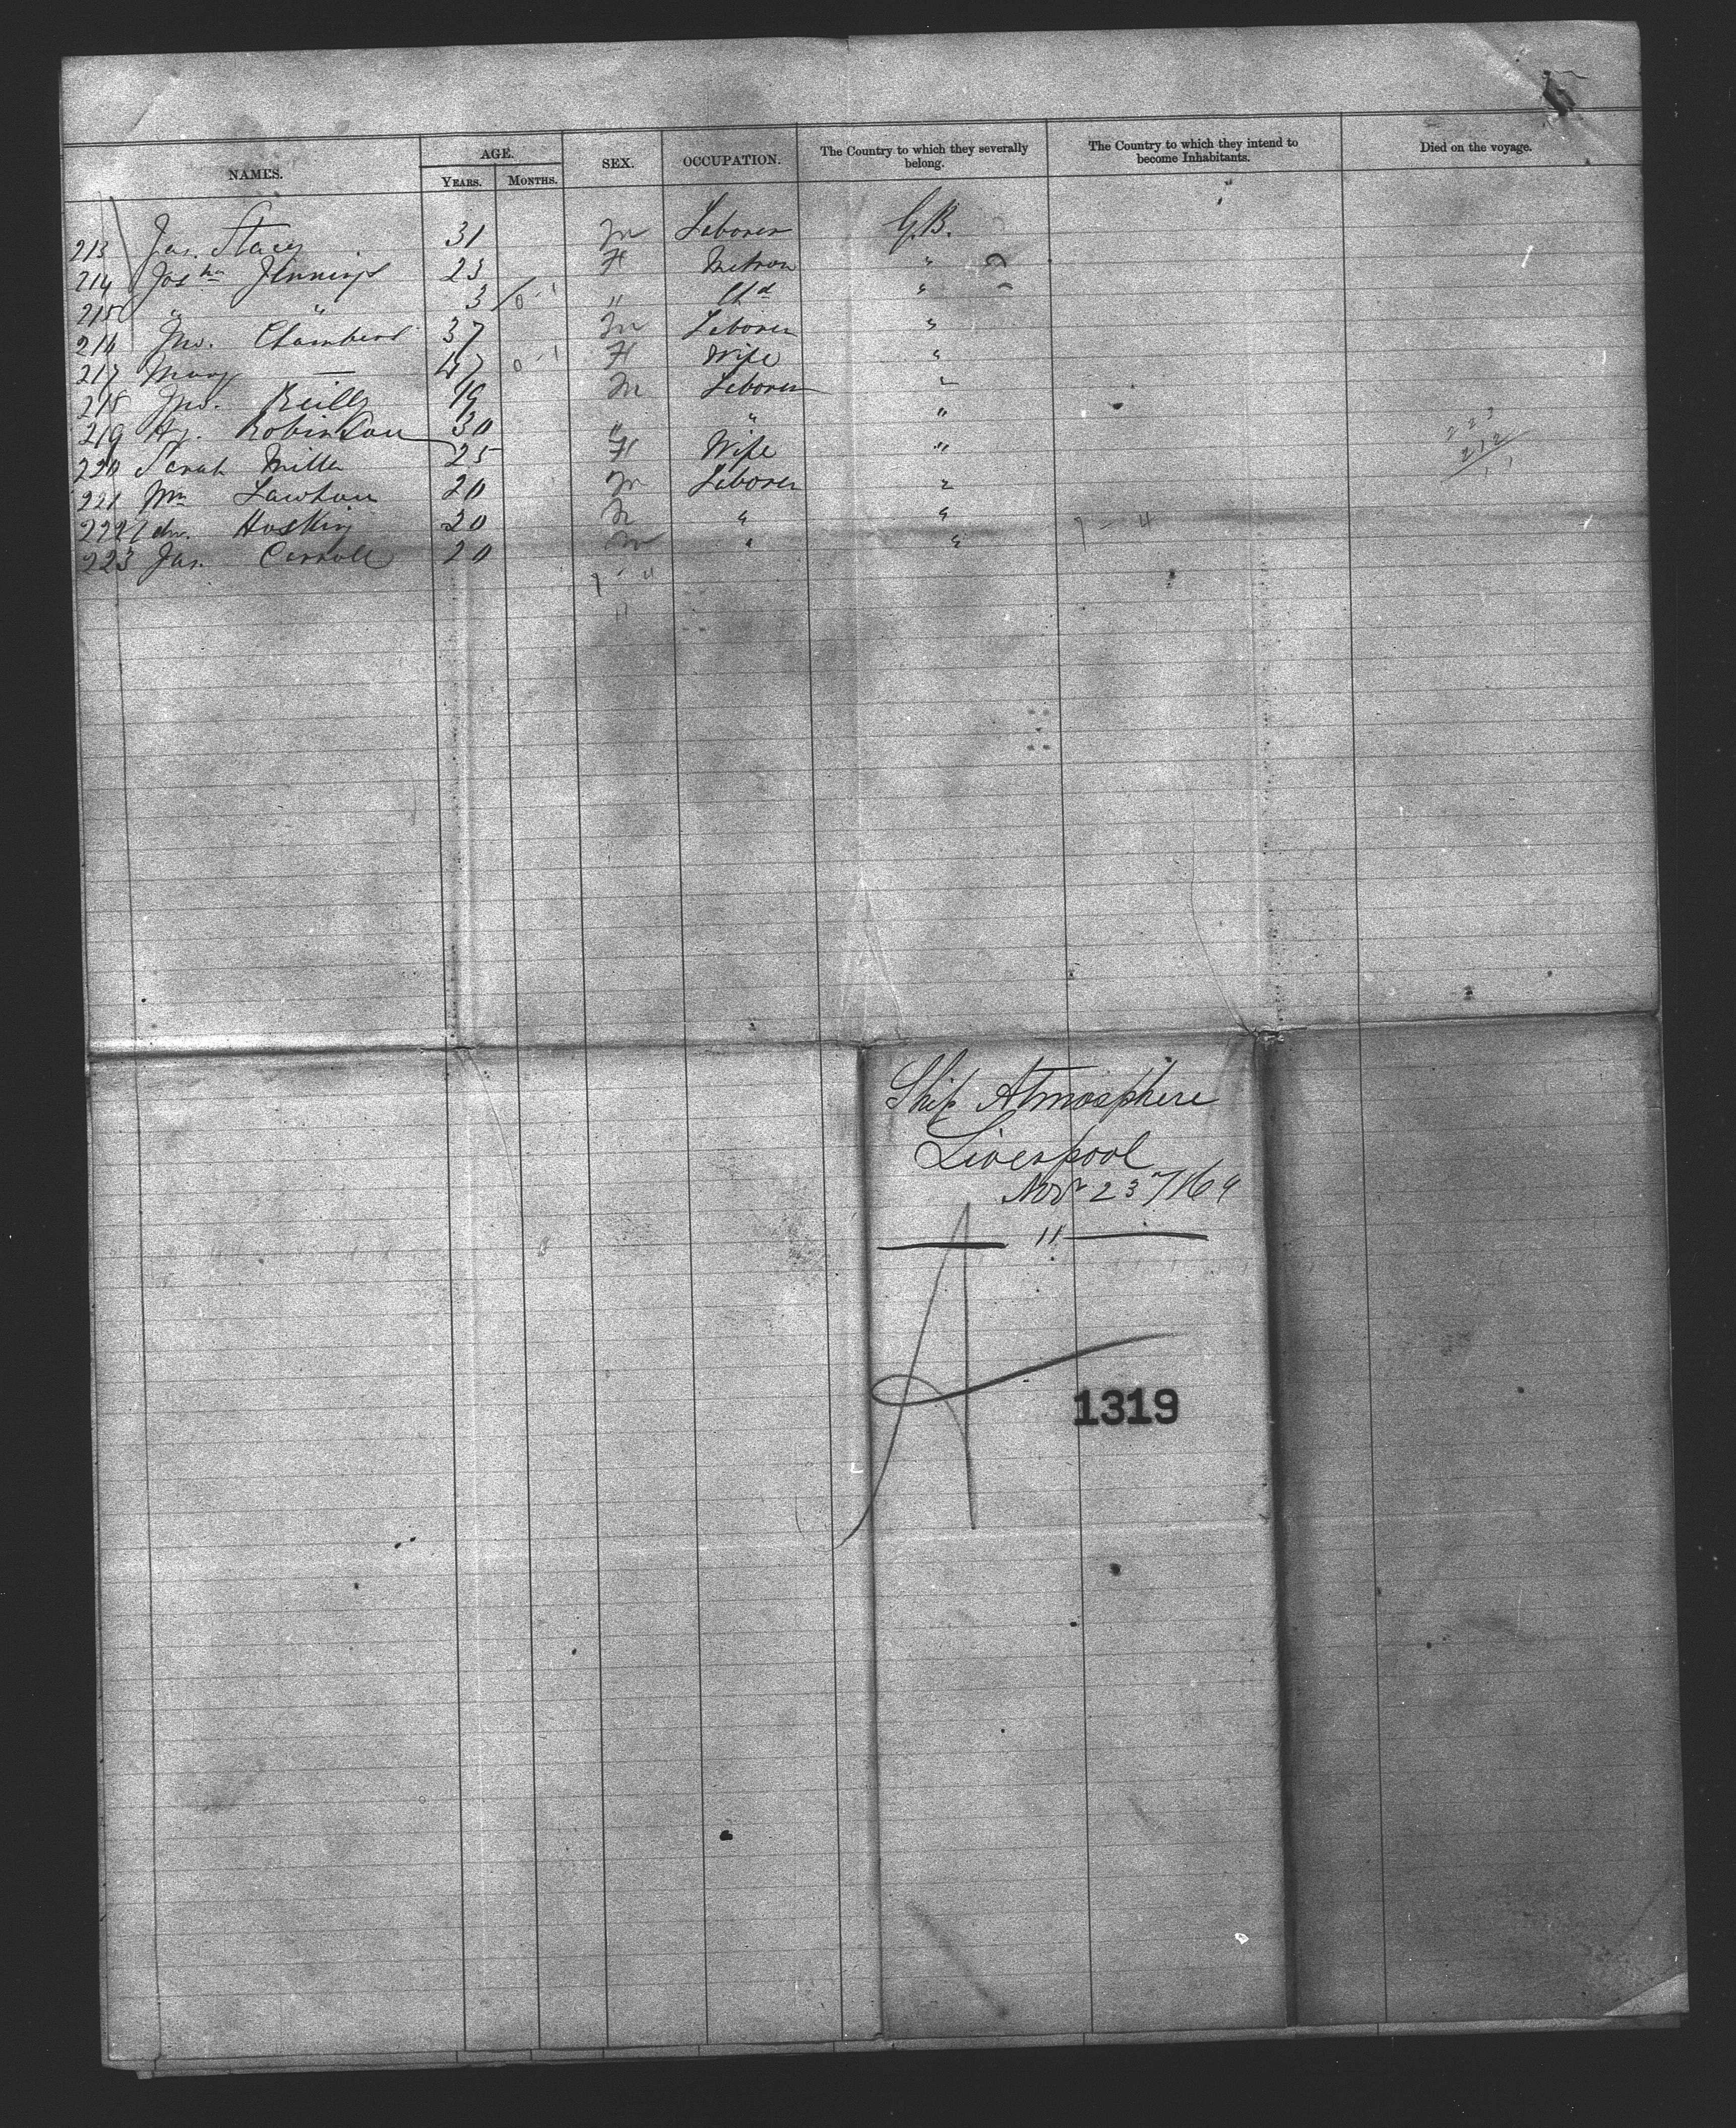 NAMES. AGE. YEARS. MONTHS. SEX. OCCUPATION. The Country to which they severally belong. The Country to which they intend to become Inhabitants. Died on the voyage.
213 Jas. Stacey 31 M Laborer G.B.
214 Josha Jennings 23 F Matron "
215 " " 3 " Chd "
216 Jno. Chambers 37 M Laborer "
217 Mary — 47 F Wife "
218 Jno. Reilly 19 M Laborer "
219 Hy. Robinson 30 " " "
220 Sarah Miller 25 F Wife "
221 Wm Lawton 20 M Laborer "
222 Edw. Hoskins 20 M " "
223 Jas. Carroll 20 M " "
223
212
11
Ship Atmosphere
Liverpool
Novr 23/64
— 11 —
A
1319